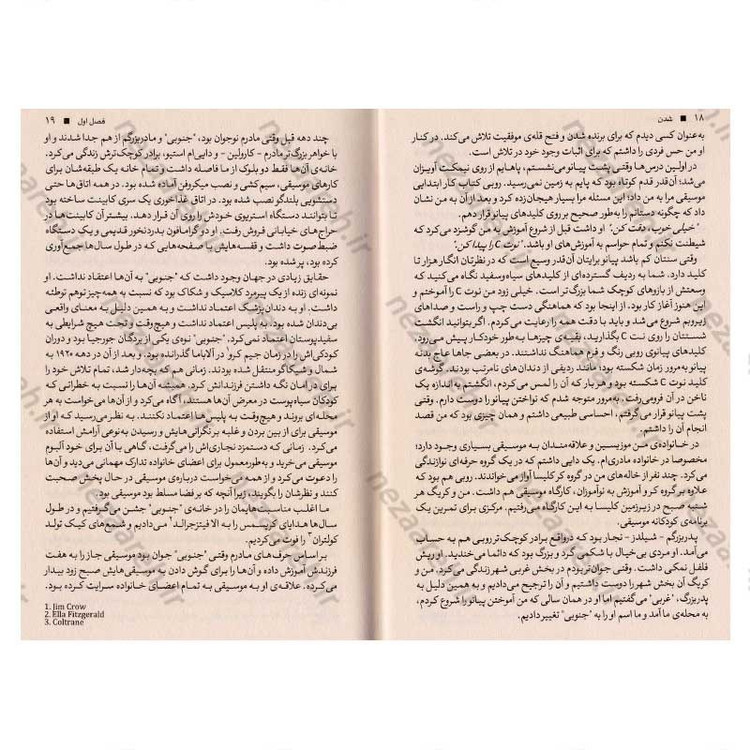 ۱۸ ■ شدن
به‌عنوان کسی دیدم که برای برنده شدن و فتح قله‌ی موفقیت تلاش می‌کند. در کنار
او من حس فردی را داشتم که برای اثبات وجود خود در تلاش است.
در اولین درس‌ها وقتی پشت پیانو می‌نشستم، پاهایم از روی نیمکت آویزان
می‌شد؛ آن‌قدر قدم کوتاه بود که پایم به زمین نمی‌رسید. روبی کتاب کار ابتدایی
موسیقی مرا به من داد؛ این مسئله مرا بسیار هیجان‌زده کرد و بعد از آن به من نشان
داد که چگونه دستانم را به‌طور صحیح بر روی کلیدهای پیانو قرار دهم.
"خیلی خوب، دقت کن." او داشت قبل از شروع آموزش به من گوشزد می‌کرد که
شیطنت نکنم و تمام حواسم به آموزش‌های او باشد. "نوت C را پیدا کن."
وقتی سنتان کم باشد پیانو برایتان آن‌قدر وسیع است که در نظرتان انگار هزار تا
کلید دارد. شما به ردیف گسترده‌ای از کلیدهای سیاه‌وسفید نگاه می‌کنید که
وسعتش از بازوهای کوچک شما بزرگ‌تر است. خیلی زود من نوت C را آموختم و
این هنوز آغاز کار بود، از اینجا بود که هماهنگی دست چپ و راست و صداهای
زیروبم شروع می‌شد و باید با دقت همه را رعایت می‌کردم. اگر بتوانید انگشت
شستتان را روی نت C بگذارید، بقیه‌ی چیزها به‌طور خودکار پیش می‌رود.
کلیدهای پیانوی روبی رنگ و فرم هماهنگ نداشتند. در بعضی جاها عاج بدنه
پیانو به‌مرور زمان شکسته بود، مانند ردیفی از دندان‌های نامرتب بودند. گوشه‌ی
کلید نوت C شکسته بود و هر بار که آن را لمس می‌کردم، انگشتم به‌اندازه یک
ناخن در آن فرومی‌رفت. به‌مرور متوجه شدم که نواختن پیانو را دوست دارم. وقتی
پشت پیانو قرار می‌گرفتم، احساسی طبیعی داشتم و همان چیزی بود که من قصد
انجام آن را داشتم.
در خانواده‌ی من موزیسین و علاقه‌مندان به موسیقی بسیاری وجود دارد؛
مخصوصا در خانواده مادری‌ام. یک دایی داشتم که در یک گروه حرفه‌ای نوازندگی
می‌کرد. چند نفر از خاله‌های من در گروه کر کلیسا آواز می‌خواندند. روبی هم بود که
علاوه بر گروه کر و آموزش به نوآموزان، کارگاه موسیقی هم داشت. من و کریگ هر
شنبه صبح در زیرزمین کلیسا به این کارگاه می‌رفتیم. مرکزی برای تمرین یک
برنامه‌ی کودکانه موسیقی.
پدربزرگم - شیلدز - نجار بود که درواقع برادر کوچک‌تر روبی هم به حساب
می‌آمد. او مردی بی‌خیال با شکمی گرد و بزرگ بود که دائما می‌خندید. او ریش
فلفل نمکی داشت. وقتی جوان‌تر بودم در بخش غربی شهر زندگی می‌کرد. من و
کریگ آن بخش شهر را دوست داشتیم و آن را ترجیح می‌دادیم و به همین دلیل به
پدربزرگ، "غربی" می‌گفتیم اما او در همان سالی که من آموختن پیانو را شروع کردم،
به محله‌ی ما آمد و ما اسم او را به "جنوبی" تغییر دادیم.
فصل اول ■ ۱۹
چند دهه قبل وقتی مادرم نوجوان بود، "جنوبی" و مادربزرگم از هم جدا شدند و او
با خواهر بزرگ‌تر مادرم - کارولین - و دایی‌ام استیو، برادر کوچک‌ترش زندگی می‌کرد.
خانه‌ی آن‌ها فقط دو بلوک از ما فاصله داشت و تمام خانه یک طبقه‌شان برای
کارهای موسیقی، سیم‌کشی و نصب میکروفن آماده شده بود. در همه اتاق‌ها حتی
دستشویی بلندگو نصب شده بود. در اتاق غذاخوری یک سری کابینت ساخته بود
تا بتوانند دستگاه استریوی خودش را روی آن قرار دهد. بیشتر آن کابینت‌ها در
حراج‌های خیابانی فروش رفت. او دو گرامافون بدردنخور قدیمی و یک دستگاه
ضبط صوت داشت و قفسه‌هایش با صفحه‌هایی که در طول سال‌ها جمع‌آوری
کرده بود، پر شده بود.
حقایق زیادی در جهان وجود داشت که "جنوبی" به آن‌ها اعتقاد نداشت. او
نمونه‌ای زنده از یک پیرمرد کلاسیک و شکاک بود که نسبت به همه‌چیز توهم توطئه
داشت. او به دندان‌پزشک اعتماد نداشت و به همین دلیل به معنای واقعی
بی‌دندان شده بود. به پلیس اعتماد نداشت و هیچ‌وقت و تحت هیچ شرایطی به
سفیدپوستان اعتماد نمی‌کرد. "جنوبی" نوه‌ی یکی از بردگان جورجیا بود و دوران
کودکی‌اش را در زمان جیم کرو۱ در آلاباما گذرانده بود. و بعد از آن در دهه ۱۹۲۰ به
شمال و شیکاگو منتقل شده بودند. زمانی هم که بچه‌دار شد، تمام تلاش خود را
برای در امان نگه داشتن فرزندانش کرد. همیشه آن‌ها را نسبت به خطراتی که
کودکان سیاه‌پوست در معرض آن‌ها هستند، آگاه می‌کرد و از آن‌ها می‌خواست به هر
محله‌ای بروند و هیچ‌وقت به پلیس‌ها اعتماد نکنند. به نظر می‌رسید که او از
موسیقی برای از بین بردن و غلبه بر نگرانی‌هایش و رسیدن به‌نوعی آرامش استفاده
می‌کرد. زمانی که دستمزد نجاری‌اش را می‌گرفت، گاهی با آن برای خود آلبوم
موسیقی می‌خرید و به‌طورمعمول برای اعضای خانواده تدارک مهمانی می‌دید و آن‌ها
را دعوت می‌کرد و از همه می‌خواست درباره‌ی موسیقی در حال پخش صحبت
کنند و نظرشان را بگویند، زیرا آنچه که بر فضا مسلط بود موسیقی بود.
ما اغلب مناسبت‌هایمان را در خانه‌ی "جنوبی" جشن می‌گرفتیم و در طول
سال‌ها هدایای کریسمس را به الا فیتزجرالد۲ می‌دادیم و شمع‌های کیک تولد
کولتران۳ را فوت می‌کردیم.
بر اساس حرف‌های مادرم وقتی "جنوبی" جوان بود موسیقی جاز را به هفت
فرزندش آموزش داده و آن‌ها را برای گوش دادن به موسیقی‌هایش صبح زود بیدار
می‌کرده. علاقه‌ی او به موسیقی به تمام اعضای خانواده سرایت کرده بود.
1. Jim Crow
2. Ella Fitzgerald
3. Coltrane
nezaareh.ir